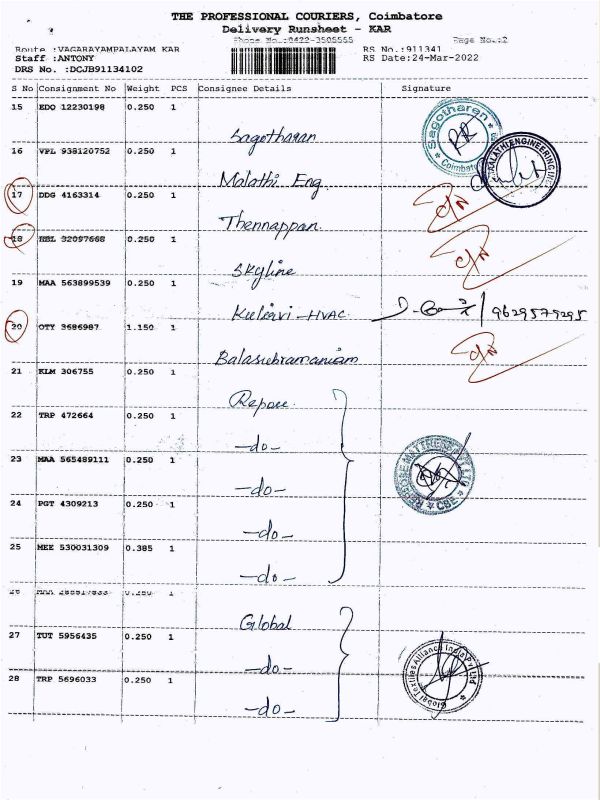 THE PROFESSIONAL COURIERS, Coimbatore
Delivery Runsheet - KAR
Phone No.:0422-3505555 Page No.:2
Route :VAGARAYAMPALAYAM KAR RS No.:911341
Staff :ANTONY RS Date:24-Mar-2022
DRS No. :DCJB91134102
S No Consignment No Weight PCS Consignee Details Signature
15 EDO 12230198 0.250 1 Sagotharan
16 VPL 938120752 0.250 1 Malathi Eng
17 DDG 4163314 0.250 1 Thennappan. C/N
18 HSL 32097668 0.250 1 Skyline C/N
19 MAA 563899539 0.250 1 -HVAC 9629579295
20 OTY 3686987 1.150 1 Balasubramaniam C/N
21 KLM 306755 0.250 1 Repose
22 TRP 472664 0.250 1 -do-
23 MAA 565489111 0.250 1 -do-
24 PGT 4309213 0.250 1 -do-
25 MEE 530031309 0.385 1 -do-
26 MAA 0.250 1 Global
27 TUT 5956435 0.250 1 -do-
28 TRP 5696033 0.250 1 -do-
Sagotharan
Coimbatore
MALATHI ENGINEERING
REPOSE MATTRESS PVT LTD
CBE
Global Textiles Alliance India Pvt Ltd